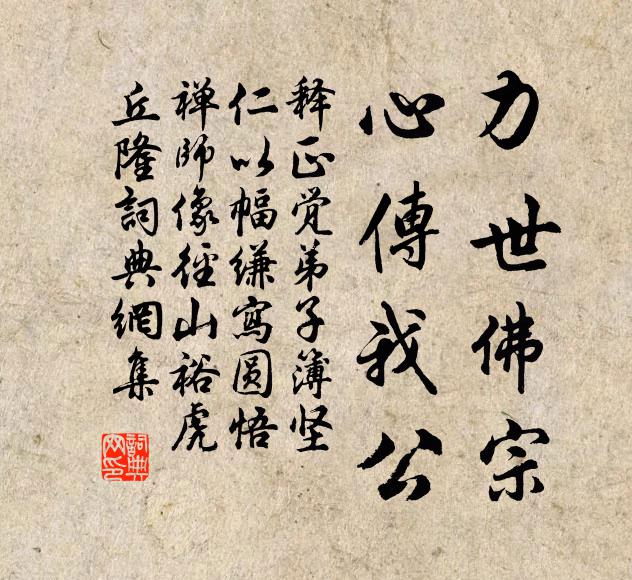 力世佛宗
心傳我公
释正觉弟子簿坚
仁以幅缣寫圆悟
禅師像徑山裕虎
丘隆詞典網集
詞典
网印